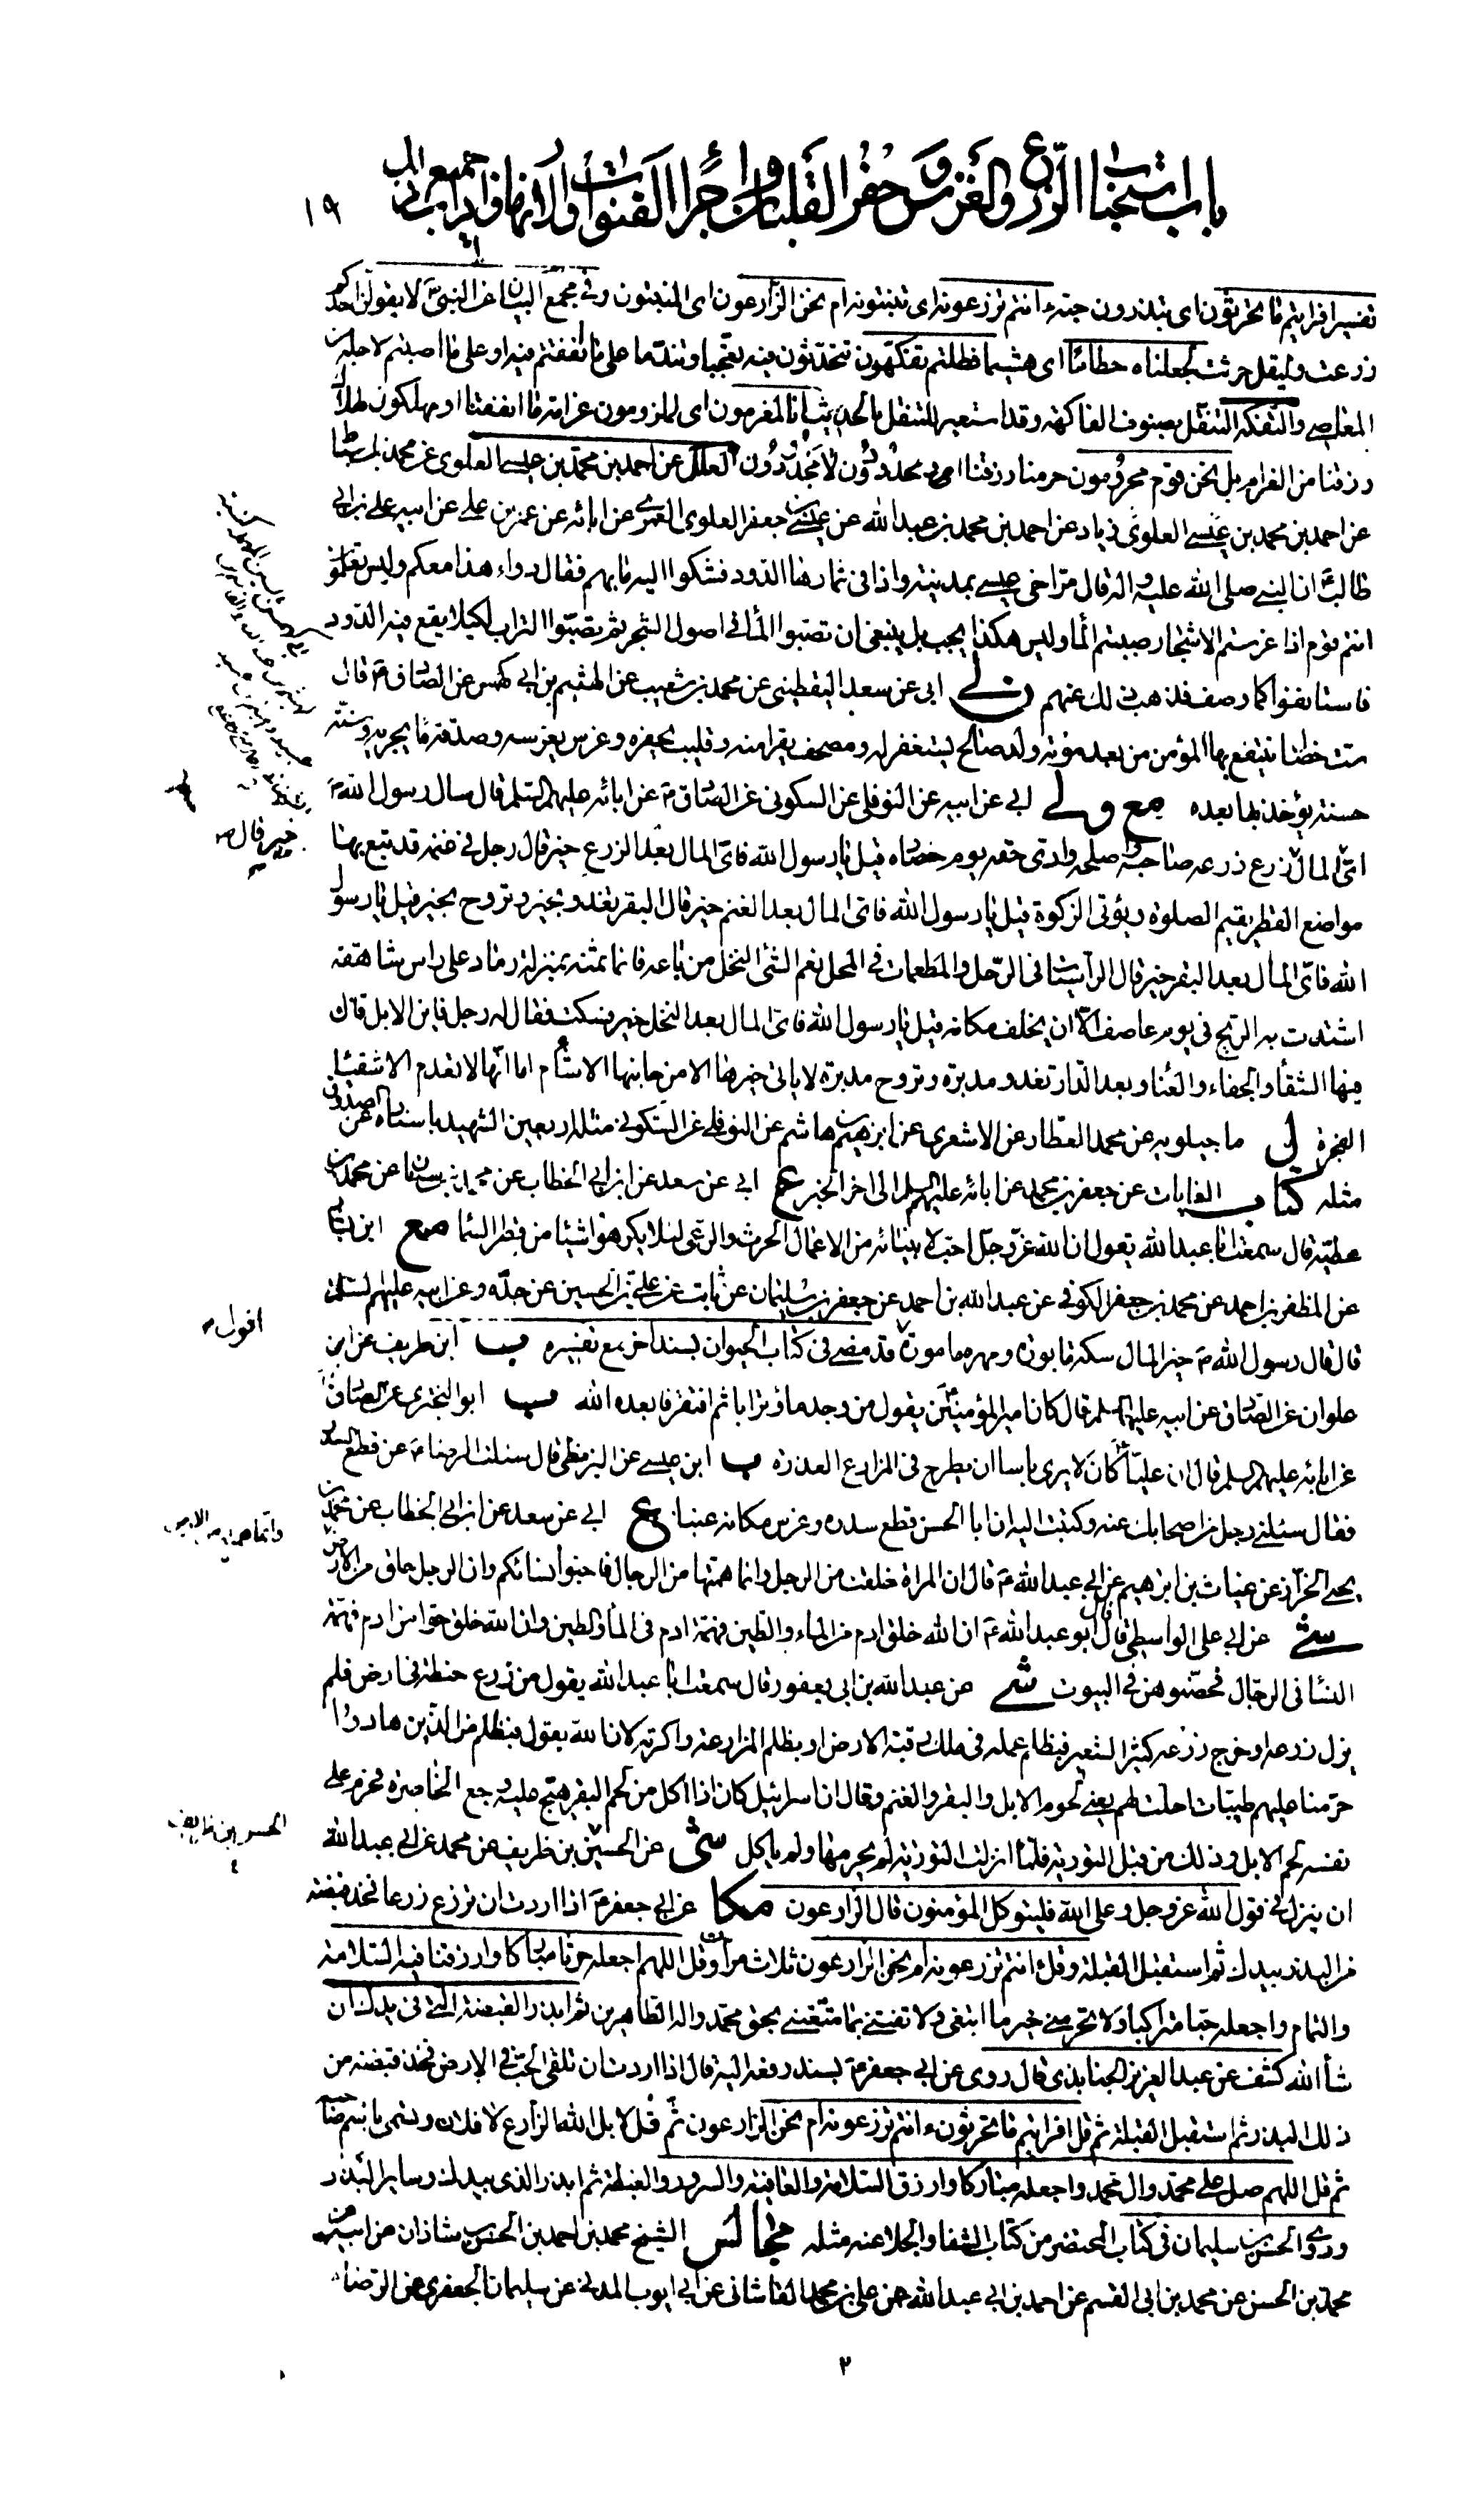 باب استحباب الزرع والغرس وحفر القلبان واجراء القنوات والانهار واداب جميع ذلك
١٩
تفسير افرايتم ما تحرثون اى تبذرون حبه ءانتم تزرعونه اى تنبتونه ام نحن الزارعون اى المنبتون وفى مجمع البيان عن النبى ص لا يقولن احدكم
زرعت وليقل حرثت لجعلناه حطاما اى هشيما فظلتم تفكهون تتحدثون فيه تعجبا وتندما على ما انفقتم فيه او على ما اصبتم لاجله من
المعاصى والتفكه التنقل بصنوف الفاكهة وقد استعير للتنقل بالحديث انا لمغرمون اى لملزمون غرامة ما انفقنا او مهلكون لهلاك
رزقنا من الغرام بل نحن قوم محرومون حرمنا رزقنا او محدودون لا مجدودون العلل عن احمد بن محمد بن عيسى العلوى عن محمد بن اسباط
عن احمد بن محمد بن زياد عن احمد بن محمد بن عبد الله عن عيسى بن جعفر العلوى العمرى عن ابائه عن عمر بن على عن ابيه على بن ابى
طالب ع ان النبى صلى الله عليه واله قال مر اخى عيسى بمدينة واذا فى ثمارها الدود فشكوا اليه ما بهم فقال دواء هذا معكم وليس تعلمون
انتم قوم اذا غرستم الاشجار صببتم الماء وليس هكذا يجب بل ينبغى ان تصبوا الماء فى اصول الشجر ثم تصبوا التراب لكيلا يقع فيه الدود
فاستانفوا كما وصف فذهب ذلك عنهم ل ابى عن سعد اليقطينى عن محمد بن شعيب عن الهيثم بن ابى كهمس عن الصادق ع قال
ست خصال ينتفع بها المؤمن من بعد موته ولد صالح يستغفر له ومصحف يقرا منه وقليب يحفره وغرس يغرسه وصدقة ماء يجريه وسنة
حسنة يؤخذ بها بعده مع ولى ابى عن ابيه عن النوفلى عن السكونى عن الصادق ع عن ابائه عليهم السلم قال سال رسول الله ص
اى المال خير قال
زرع زرعه صاحبه واصلحه وادى حقه يوم حصاده قيل يا رسول الله فاى المال بعد الزرع خير قال رجل فى غنمه قد تبع بها
مواضع القطر يقيم الصلوة ويؤتى الزكوة قيل يا رسول الله فاى المال بعد الغنم خير قال البقر تغدو بخير وتروح بخير قيل يا رسول
الله فاى المال بعد البقر خير قال الراسيات فى الوحل والمطعمات فى المحل نعم الشئ النخل من باعه فانما ثمنه بمنزلة رماد على راس شاهقة
اشتدت به الريح فى يوم عاصف الا ان يخلف مكانه قيل يا رسول الله فاى المال بعد النخل خير فسكت فقال له رجل فاين الابل قال
فيها الشقاء والجفاء والعناء وبعد الدار تغدو مدبرة وتروح مدبرة لا ياتى خيرها الا من جانبها الاشام اما انها لا تعدم الاشقياء
الفجرة ل ماجيلويه عن محمد العطار عن الاشعرى عن ابرهيم بن هاشم عن النوفلى عن السكونى مثله اربعين الشهيد باسناده عن الصدوق
مثله كتاب الغايات عن جعفر بن محمد عن ابائه عليهم السلم الى اخر الخبر ع ابى عن سعد عن ابن ابى الخطاب عن محمد بن سنان عن محمد بن
عطية قال سمعت ابا عبد الله يقول ان الله عز وجل احب لانبيائه من الاعمال الحرث والرعى لئلا يكرهوا شيئا من قطر السماء مع ابن بشار
عن المظفر بن احمد عن محمد بن جعفر الكوفى عن عبد الله بن احمد عن جعفر بن سليمان عن ثابت عن على بن الحسين عن جده وعن ابيه عليهم السلام
قال قال رسول الله ص خير المال سكة مابورة ومهرة مامورة اقول قد مضى فى كتاب الحيوان بسند اخر مع تفسيره ب ابن طريف عن ابن
علوان عن الصادق عن ابيه عليهما السلم قال كان امير المؤمنين ع يقول من وجد ماء وترابا ثم افتقر فابعده الله ب ابو البخترى عن الصادق
عن ابائه عليهم السلم قال ان عليا ع كان لا يرى باسا ان يطرح فى المزارع العذرة ب ابن عيسى عن البزنطى قال سئلت الرضا ع عن قطع السدر
فقال سئلنى رجل من اصحابك عنه وكتبت اليه ان ابا الحسن قطع سدرة وغرس مكانه عنبا ع ابى عن سعد عن ابن ابى الخطاب عن محمد بن
يحيى الخزاز عن غياث بن ابرهيم عن ابى عبد الله ع قال ان المراة خلقت من الرجل وانما همتها من الرجال فاحبوا نسائكم وان الرجل خلق من الارض
وانما همه فى الارض
شى عن ابى على الواسطى قال قال ابو عبد الله ع ان الله خلق ادم من الماء والطين فهمة ادم فى الماء والطين وان الله خلق حوا من ادم فهمة
النساء فى الرجال فحصنوهن فى البيوت شى عن عبد الله بن ابى يعفور قال سمعت ابا عبد الله يقول من زرع حنطة فى ارض فلم
يزك زرعه او خرج زرعه كثير الشعير فبظلم عمله فى ملك رقبة الارض او بظلم لمزارعه واكرته لان الله يقول فبظلم من الذين هادوا
حرمنا عليهم طيبات احلت لهم يعنى لحوم الابل والبقر والغنم وقال ان اسرائيل كان اذا اكل من لحم البقر هيج عليه وجع الخاصرة فحرم على
نفسه لحم الابل وذلك من قبل ان تنزل التورية فلما انزلت التورية لم يحرمها ولم ياكل شى عن الحسين بن ظريف عن محمد عن ابى عبد الله
الحسن بن ظريف
فى قول الله عز وجل وعلى الله فليتوكل المؤمنون قال الزارعون مكا عن ابى جعفر ع اذا اردت ان تزرع زرعا فخذ قبضة
من البذر بيدك ثم استقبل القبلة وقل ءانتم تزرعونه ام نحن الزارعون ثلاث مرات وقل اللهم اجعله حرثا مباركا وارزقنا فيه السلامة
والتمام واجعله حبا متراكبا ولا تحرمنى خير ما ابتغى ولا تفتنى بما متعتنى بحق محمد واله الطاهرين ثم ابذر القبضة التى فى يدك ان
شاء الله كشف عن عبد العزيز الجنابذى قال روى عن ابى جعفر ع بسند رفعه اليه قال اذا اردت ان تلقى الحب فى الارض فخذ قبضة من
ذلك البذر ثم استقبل القبلة ثم قل افرايتم ما تحرثون ءانتم تزرعونه ام نحن الزارعون ثم قل لا بل الله الزارع لا فلان وتسمى باسم صاحبه
ثم قل اللهم صل على محمد وال محمد واجعله مباركا وارزقه السلامة والعافية والسرور والغبطة ثم ابذر الذى بيدك وساير البذر
وروى الحسن بن سليمان فى كتاب المحتضر من كتاب الشفا والجلا عنه مثله مجالس الشيخ محمد بن احمد بن الحسن بن شاذان عن ابيه عن
محمد بن الحسن عن محمد بن ابى القسم عن احمد بن ابى عبد الله عن على بن محمد القاشانى عن ابى ايوب المدنى عن سليمان الجعفرى عن الرضا ع
٢